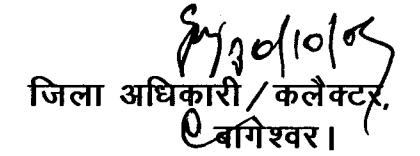 30/10/05
जिला अधिकारी / कलैक्टर,
बागेश्वर।